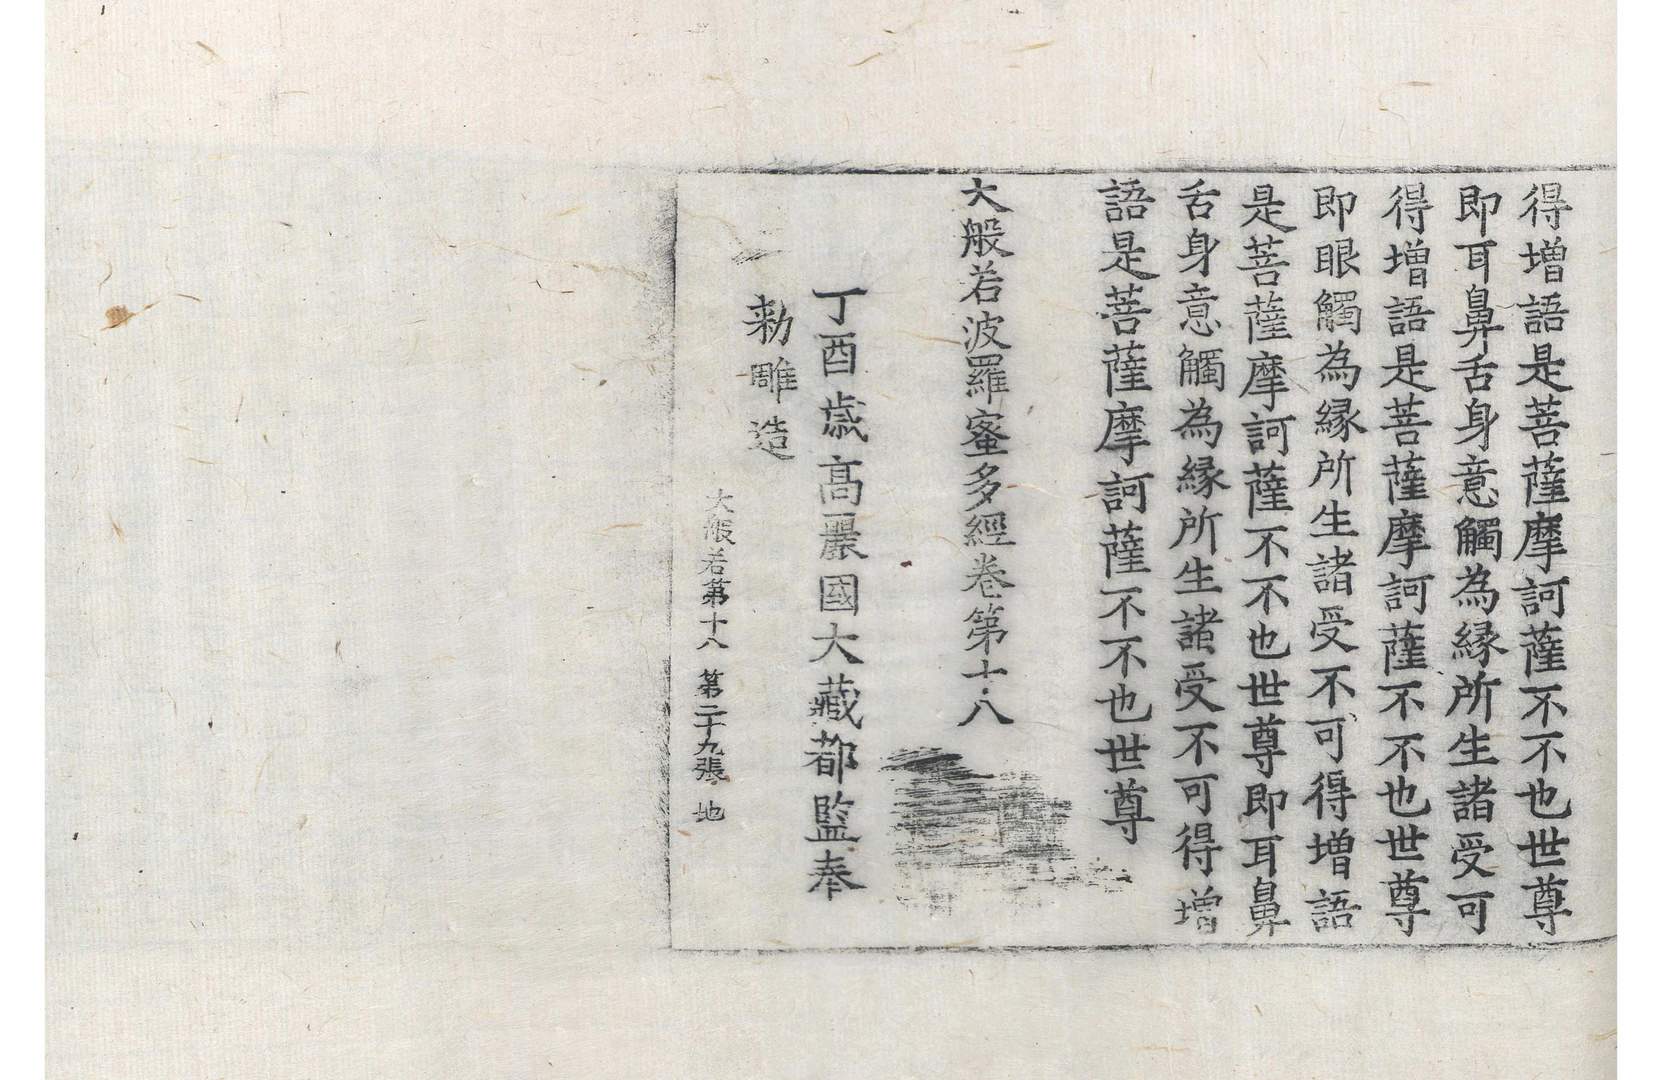 得增語是菩薩摩訶薩不不也世尊
即耳鼻舌身意觸為緣所生諸受可
得增語是菩薩摩訶薩不不也世尊
即眼觸為緣所生諸受不可得增語
是菩薩摩訶薩不不也世尊即耳鼻
舌身意觸為緣所生諸受不可得增
語是菩薩摩訶薩不不也世尊
大般若波羅蜜多經卷第十八
丁酉歲高麗國大藏都監奉
勑雕造
大般若第十八 第二十九張 地